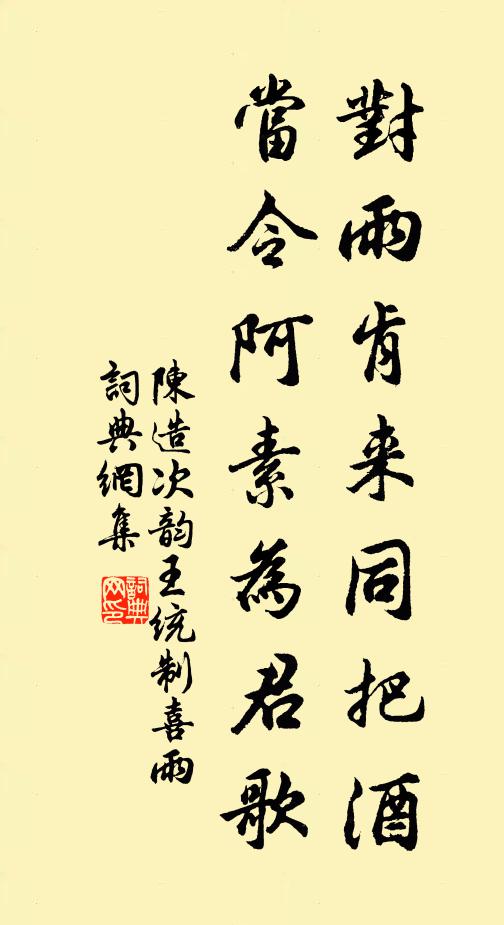 對雨肯来同把酒
當令阿素為君歌
陳造次韵王統制喜雨
詞典網集
詞典网印